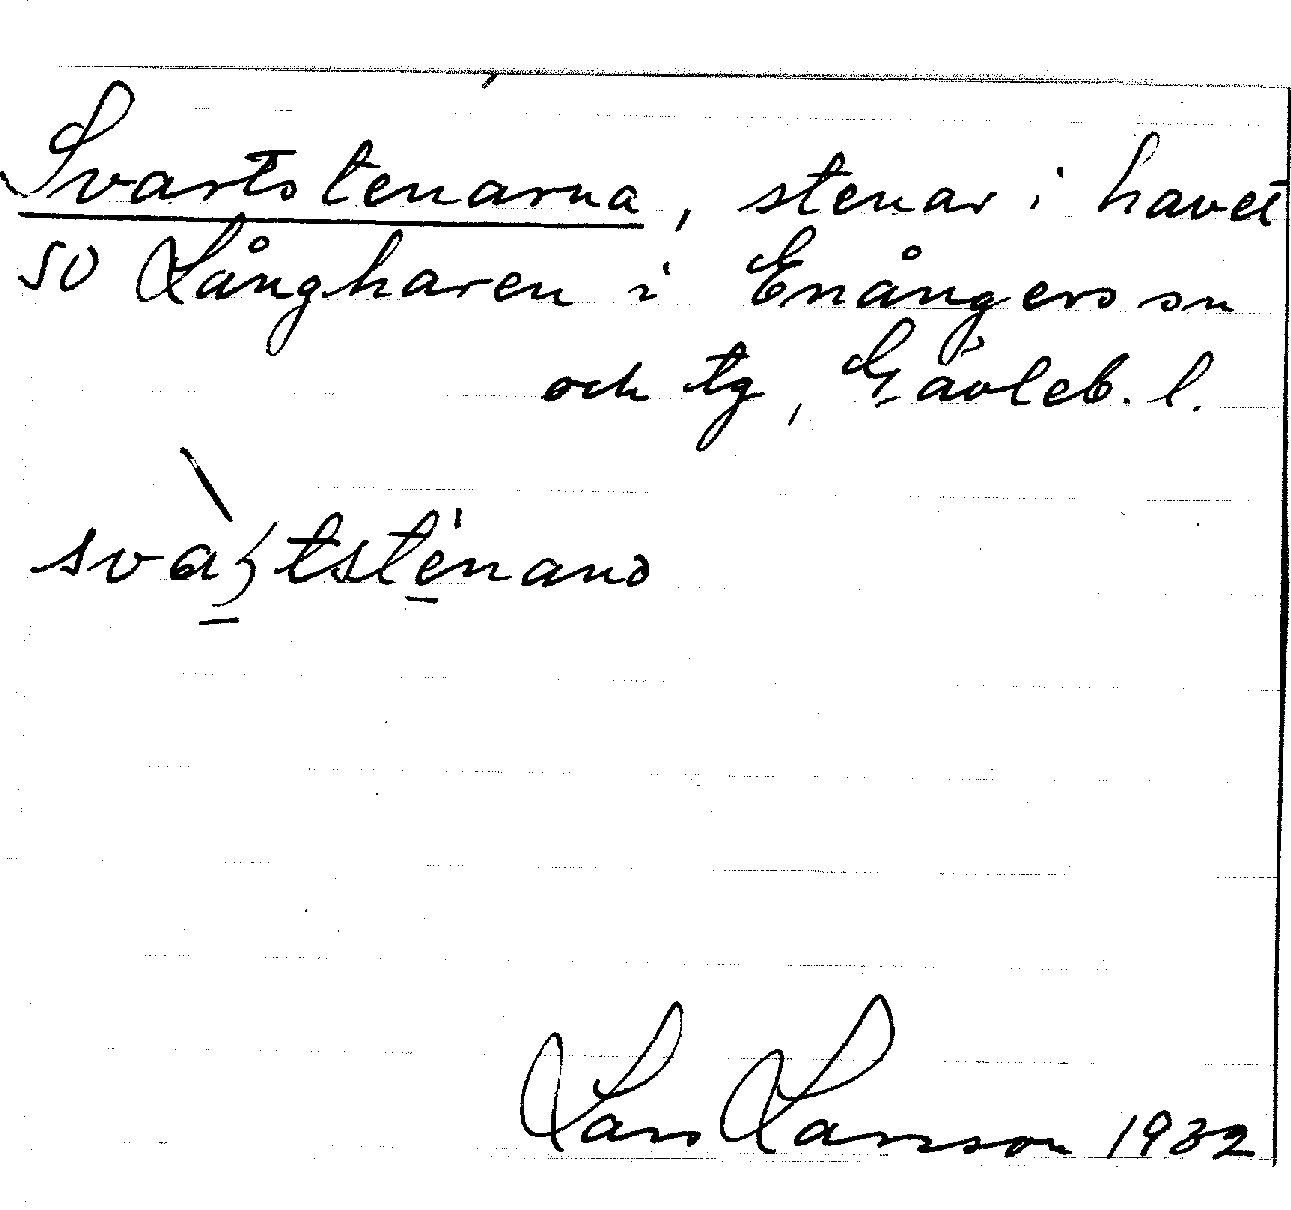 Svartstenarna, stenar i havet
SO Långharen i Enångers sn
och tg, Gävleb. l.
Lars Larsson 1932